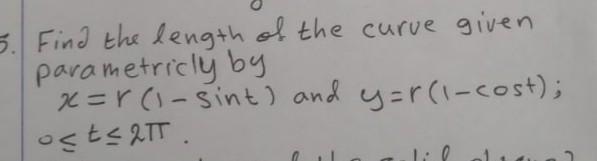 3. Find the length of the curve given
parametricly by
x = r (1 - sint) and y = r(1 - cost);
0 ≤ t ≤ 2π.